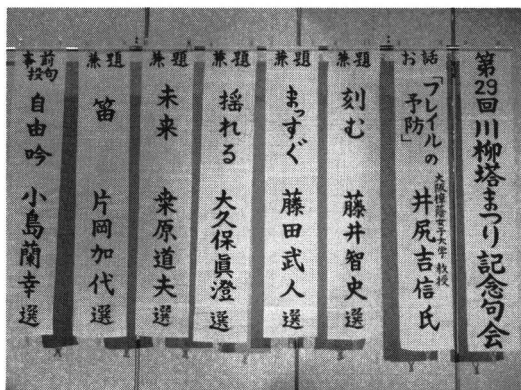 第29回川柳塔まつり記念句会
お話
「フレイルの
予防」
大阪樟蔭女子大学 教授
井尻吉信氏
兼題
刻む 藤井智史選
兼題
まっすぐ 藤田武人選
兼題
揺れる 大久保眞澄選
兼題
未来 桒原道夫選
兼題
笛 片岡加代選
事前投句
自由吟 小島蘭幸選